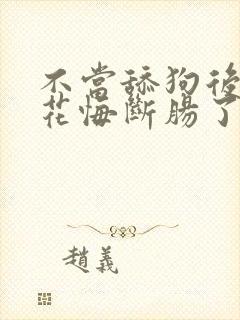 不當舔狗後
花悔斷腸了
趙義